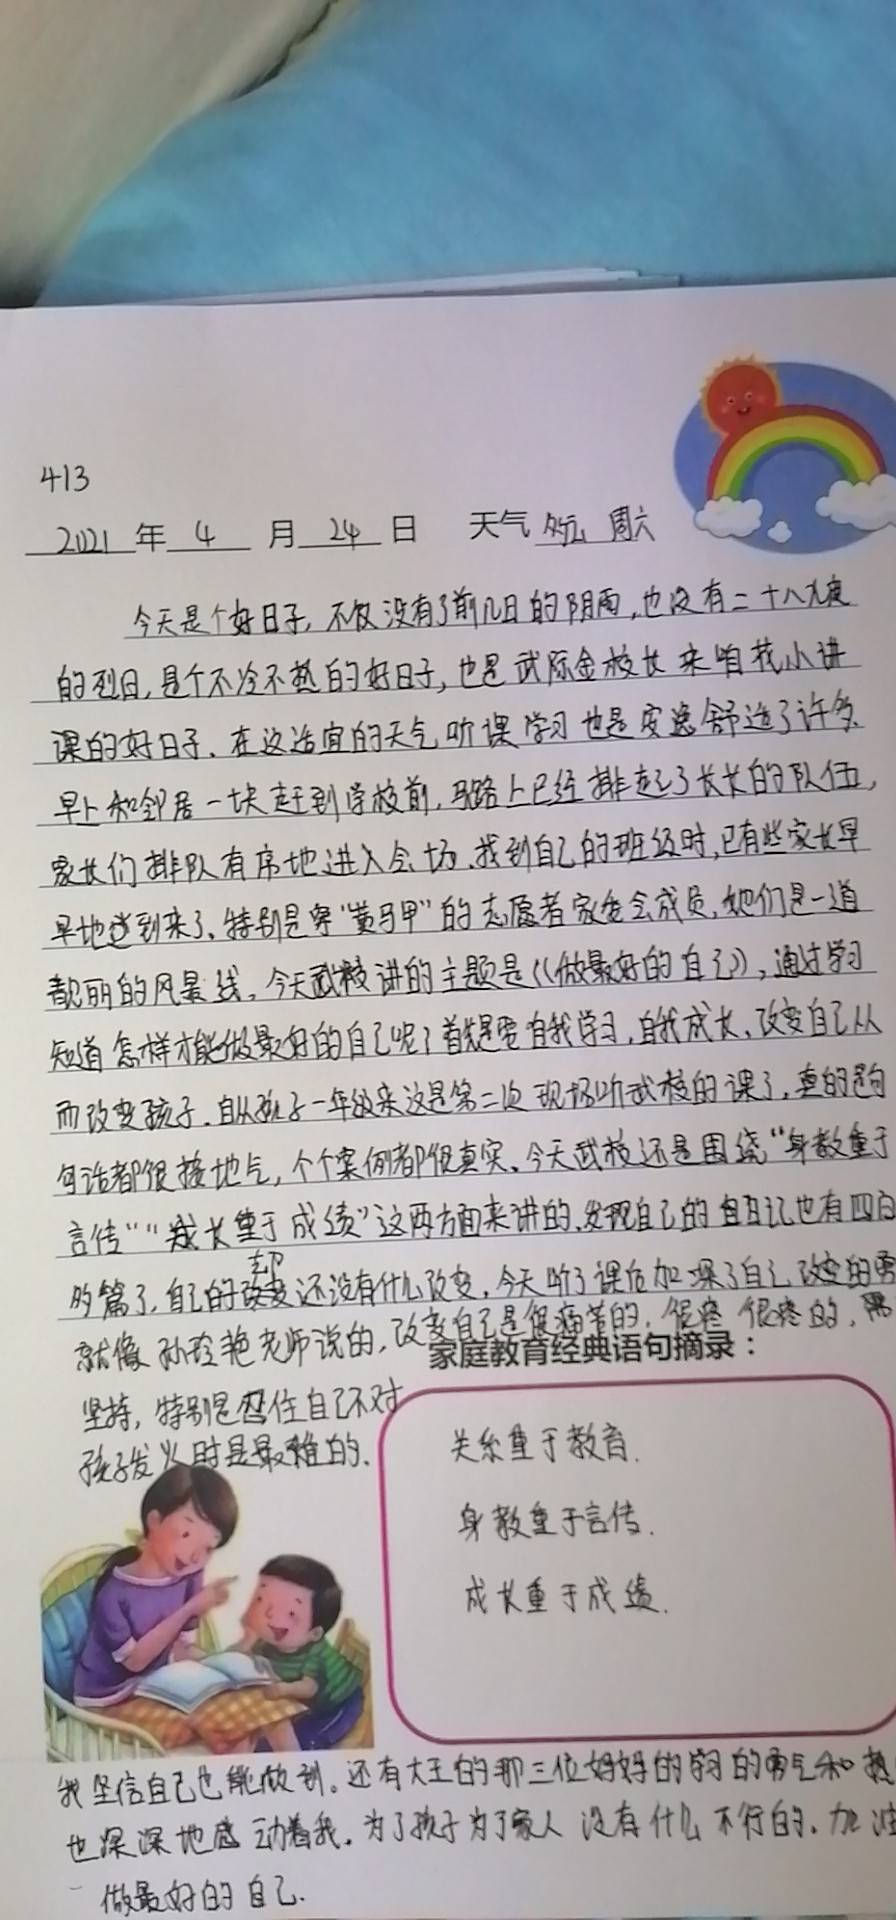 413
2021 年 4 月 24 日 天气 多云 周六
今天是个好日子,不仅没有了前几日的阴雨,也没有二十八九度
的烈日,是个不冷不热的好日子,也是武际金校长来咱花小讲
课的好日子.在这适宜的天气听课学习也是安逸舒适了许多.
早上和邻居一块赶到学校前,马路上已经排起了长长的队伍,
家长们排队有序地进入会场.找到自己的班级时,已有些家长早
早地到来了、特别是穿“黄马甲”的志愿者家委会成员,她们是一道
靓丽的风景线.今天武校讲的主题是《做最好的自己》,通过学习
知道怎样才能做最好的自己呢?首先是要自我学习,自我成长、改变自己从
而改变孩子.自从孩子一年级来这是第二次现场听武校的课了,真的是句
句话都很接地气,个个案例都很真实、今天武校还是围绕“身教重于
言传”“成长重于成绩”这两方面来讲的、发现自己的日记也有四百
多篇了,自己的却还没有什么改变,今天听了课后加深了自己改变的勇
就像孙玲艳老师说的,改变自己是很痛苦的,很疼很疼的,需
家庭教育经典语句摘录:
坚持,特别是忍住自己不对
孩子发火时是最难的.
关系重于教育.
身教重于言传.
成长重于成绩.
我坚信自己也能做到。还有大王的那三位妈妈的学习的勇气和
也深深地感动着我.为了孩子为了家人没有什么不行的.加油
做最好的自己.